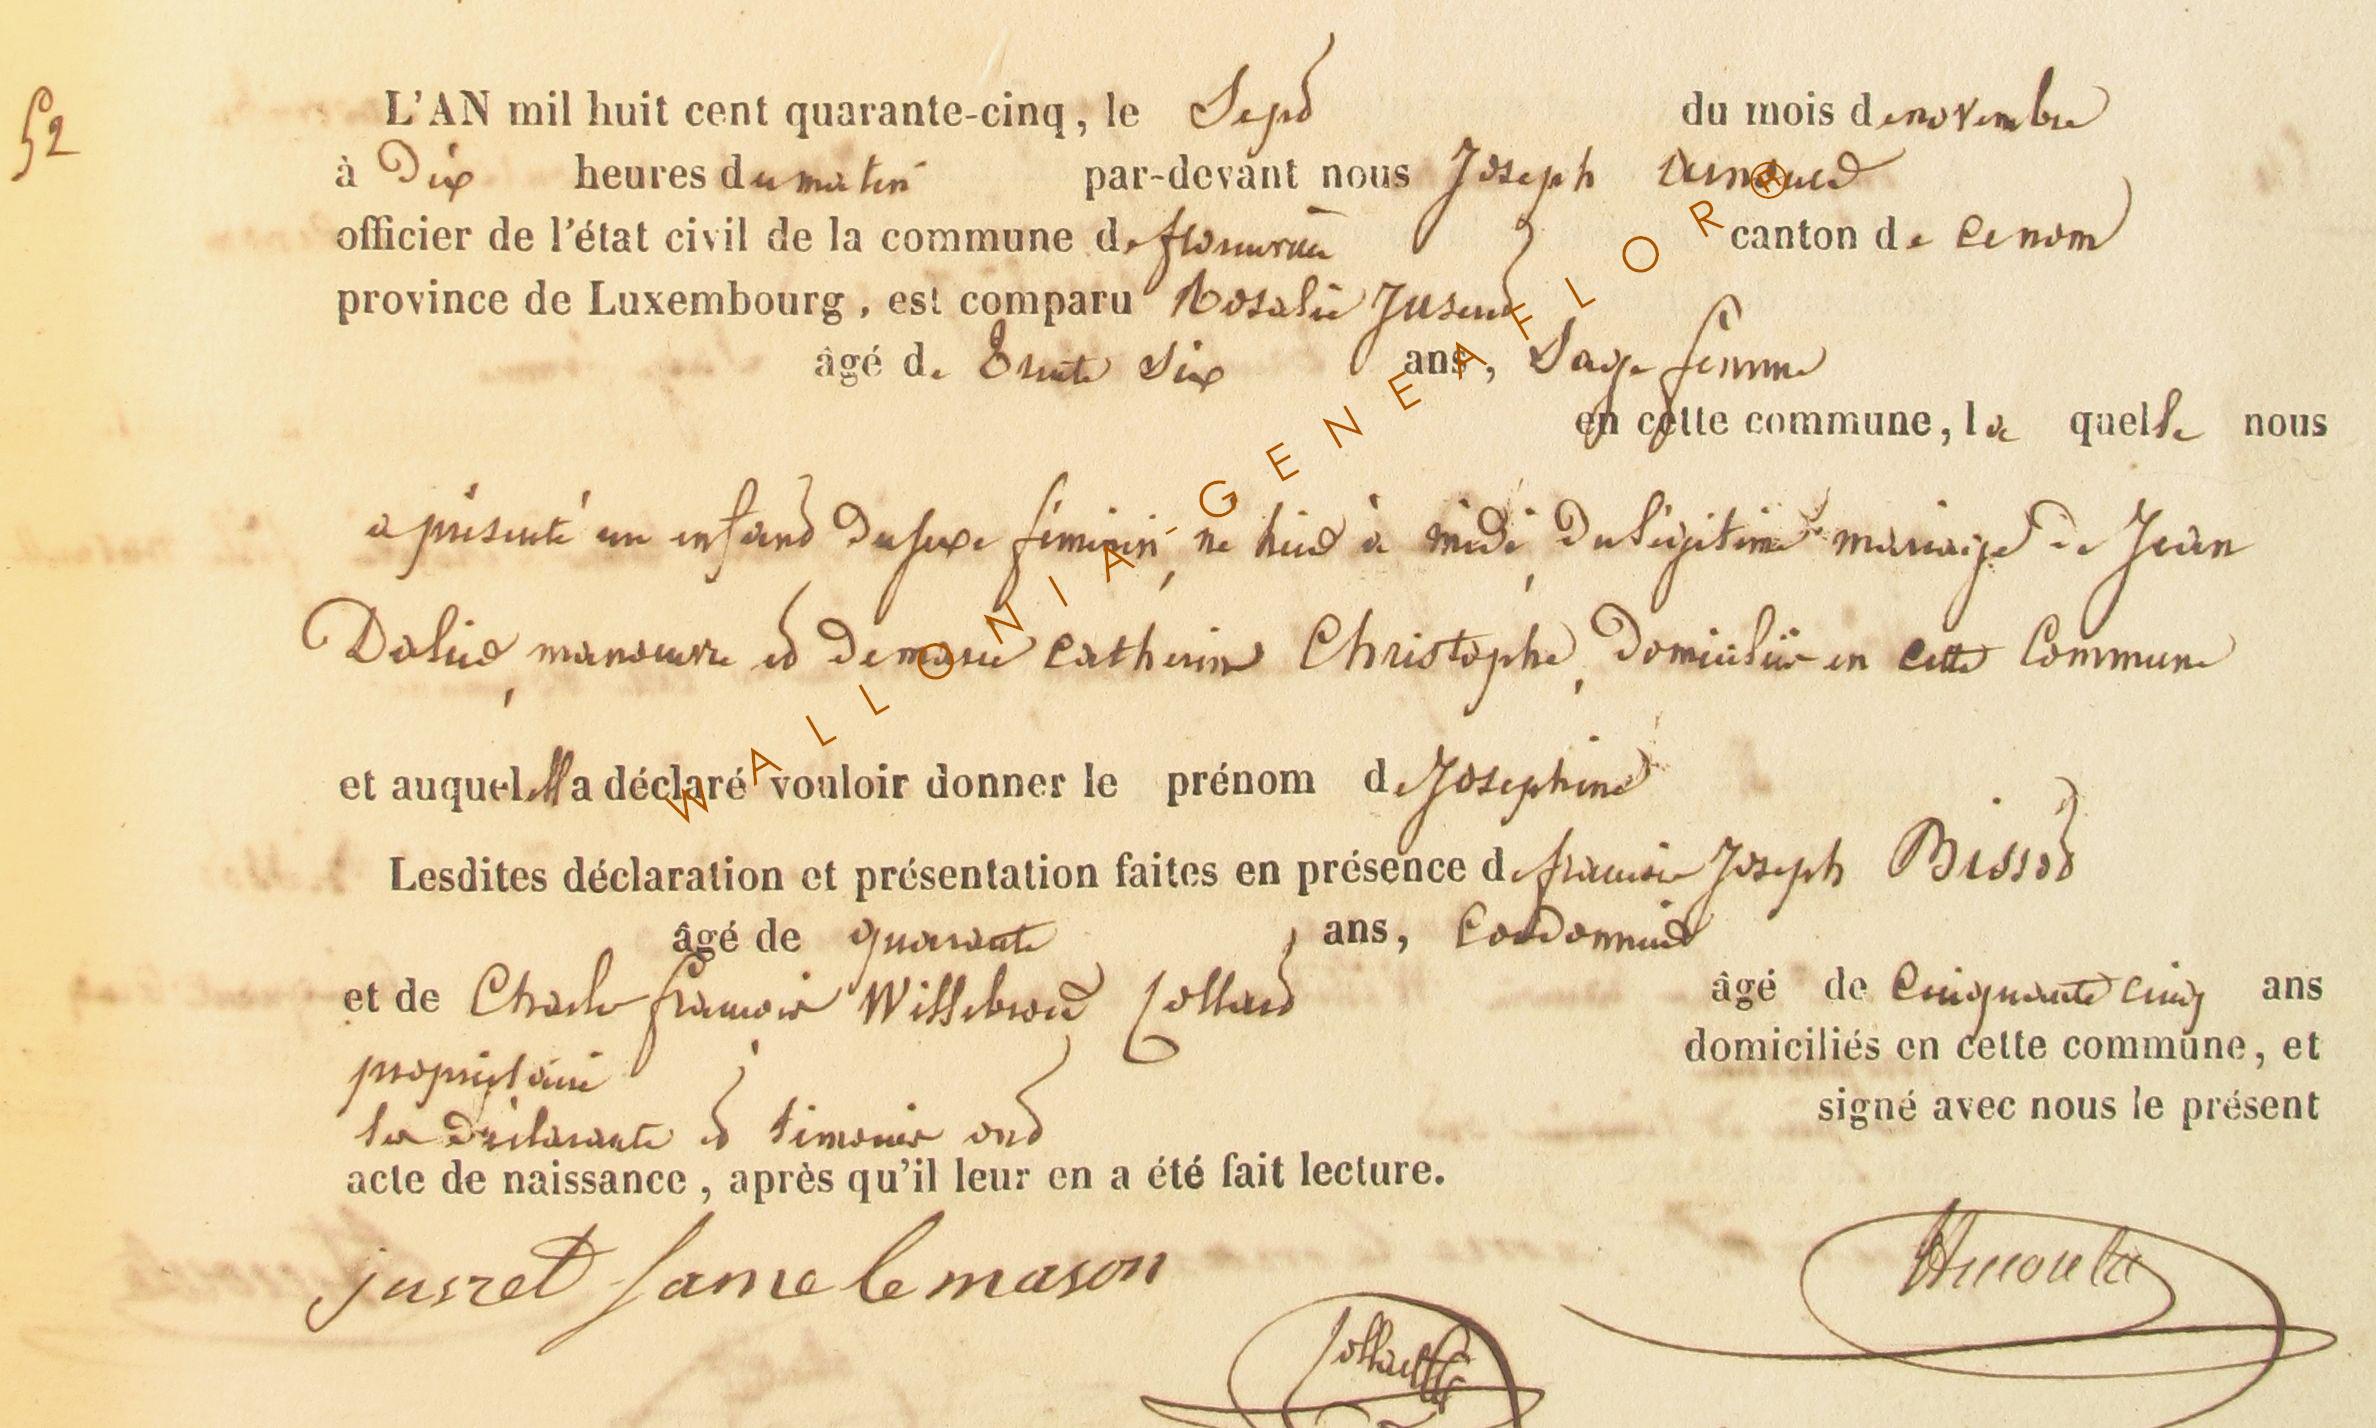 52
L'AN mil huit cent quarante-cinq, le Sept du mois de novembre
à Dix heures du matin par-devant nous Joseph
officier de l'état civil de la commune de canton de
province de Luxembourg, est comparu Rosalie
âgé de trente Six ans, Sage femme
en cette commune, la quelle nous
a présenté un enfant du sexe féminin, né hier à midi, du légitime mariage de Jean
manoeuvre et de marie catherine Christophe, domiciliés en cette Commune
et auquel elle a déclaré vouloir donner le prénom de Josephine
Lesdites déclaration et présentation faites en présence de françois Joseph Bissot
âgé de quarante ans, Cordonnier
et de Charles françois Willebrord Collard âgé de Cinquante cinq ans
propriétaire domiciliés en cette commune, et
la déclarante et témoins ont signé avec nous le présent
acte de naissance, après qu'il leur en a été fait lecture.
jusret fame lemason
WALLONIA-GENEAFLOR®